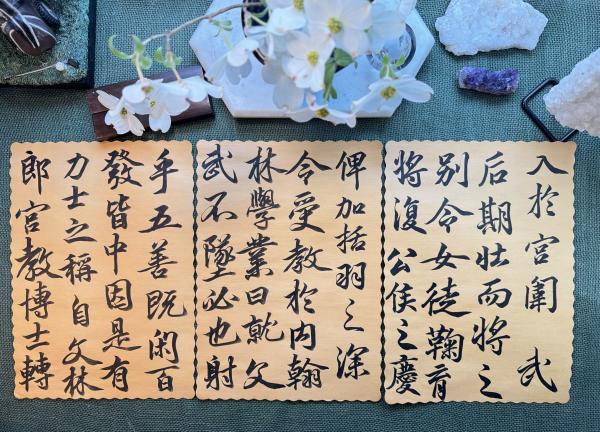 入於宮闈 武
后期壯而將之
别令女徒鞠育
將復公侯之慶
俾加括羽之深
令受教於内翰
林學業日就文
武不墜必也射
乎五善既闲百
發皆中因是有
力士之稱自文林
郎宮教博士轉